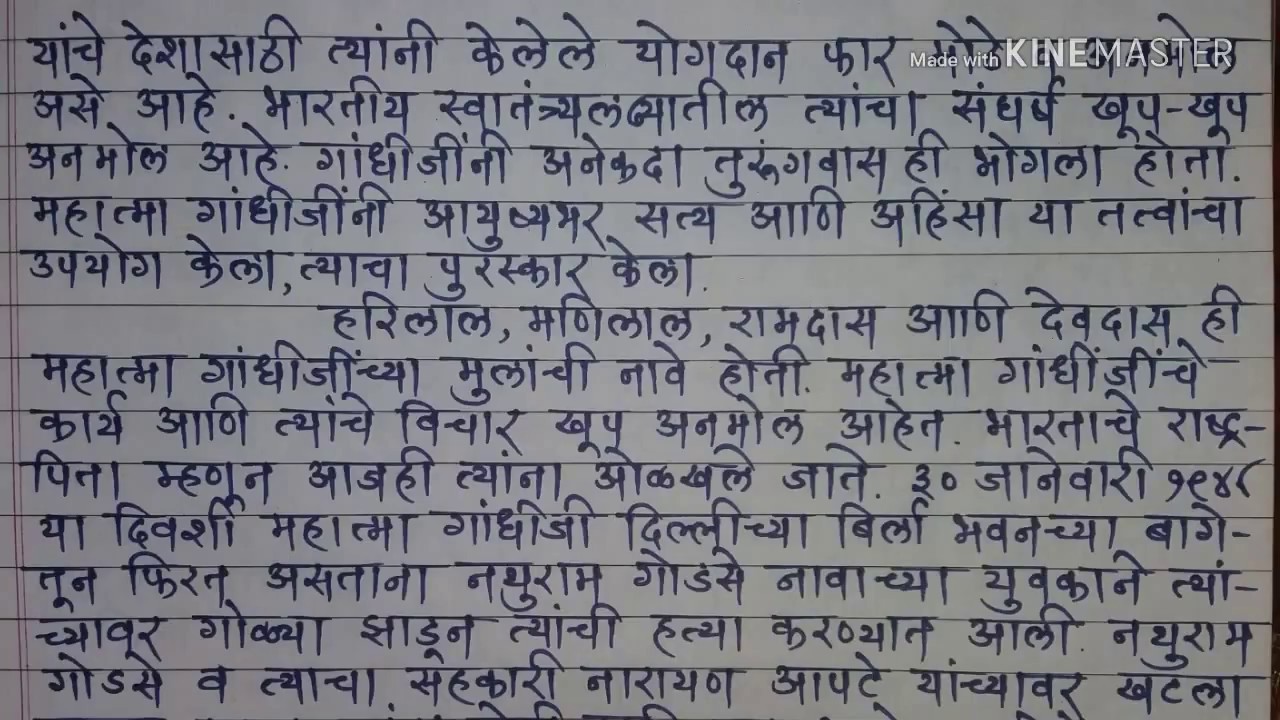 यांचे देशासाठी त्यांनी केलेले योगदान फार
Made with KINEMASTER
असे आहे. भारतीय स्वातंत्र्यलढ्यातील त्यांचा संघर्ष खूप-खूप
अनमोल आहे. गांधीजींनी अनेकदा तुरूंगवास ही भोगला होता.
महात्मा गांधीजींनी आयुष्यभर सत्य आणि अहिंसा या तत्वांचा
उपयोग केला, त्याचा पुरस्कार केला.
हरिलाल, मणिलाल, रामदास आणि देवदास ही
महात्मा गांधीजींच्या मुलांची नावे होती. महात्मा गांधीजींचे
कार्य आणि त्यांचे विचार खूप अनमोल आहेत. भारताचे राष्ट्र-
पिता म्हणून आजही त्यांना ओळखले जाते. ३० जानेवारी १९४८
या दिवशी महात्मा गांधीजी दिल्लीच्या बिर्ला भवनच्या बागे-
तून फिरत असताना नथुराम गोडसे नावाच्या युवकाने त्यां-
च्यावर गोळ्या झाडून त्यांची हत्या करण्यात आली. नथुराम
गोडसे व त्याचा सहकारी नारायण आपटे यांच्यावर खटला